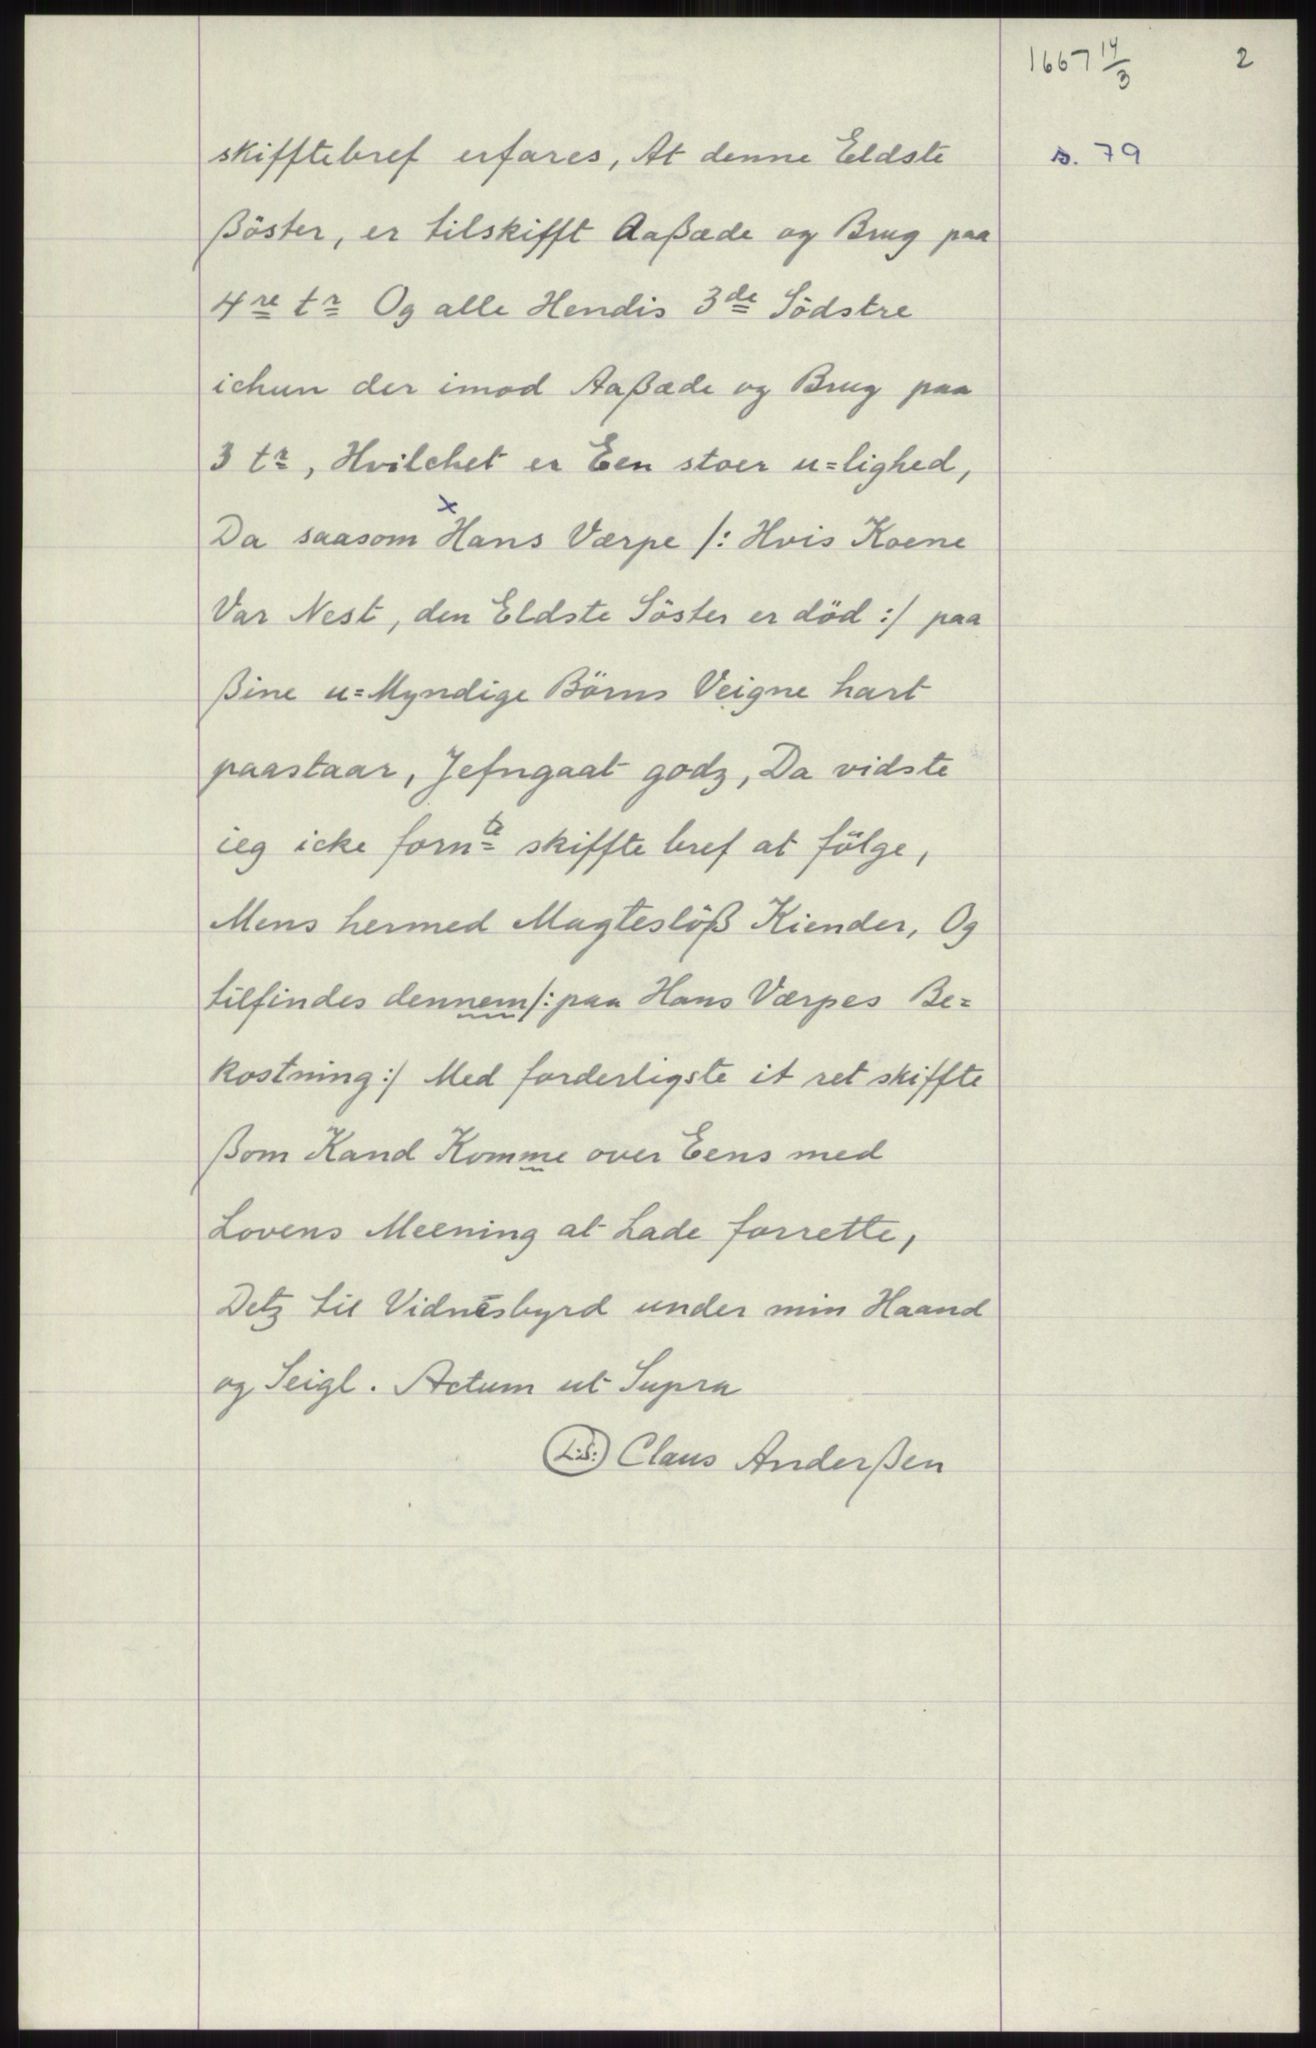 1667 14/3 2
skifftebref erfares, At denne Eldste s. 79
ßöster, er tilskifft Aaßæde og Brug paa
4re tr Og alle Hendis 3de Södstre
ichun der imod Aaßæde og Brug paa
3 tr, Hvilchet er Een stoer u=lighed,
x
Da saasom Hans Værpe /: Hvis Koene
Var Nest, den Eldste Söster er död :/ paa
ßine u=Myndige Börns Veigne hart
paastaar, Jefngaat godz, Da vidste
ieg icke fornte skiffte bref at fölge,
Mens hermed Magteslöß Kiender, Og
tilfindes dennem /: paa Hans Værpes Be=
kostning :/ Med forderligste it ret skiffte
ßom Kand Komme over Eens med
Lovens Meening at Lade forrette,
Detz til Vidnesbyrd under min Haand
og Seigl. Actum ut Supra
L.S: Claus Anderßen